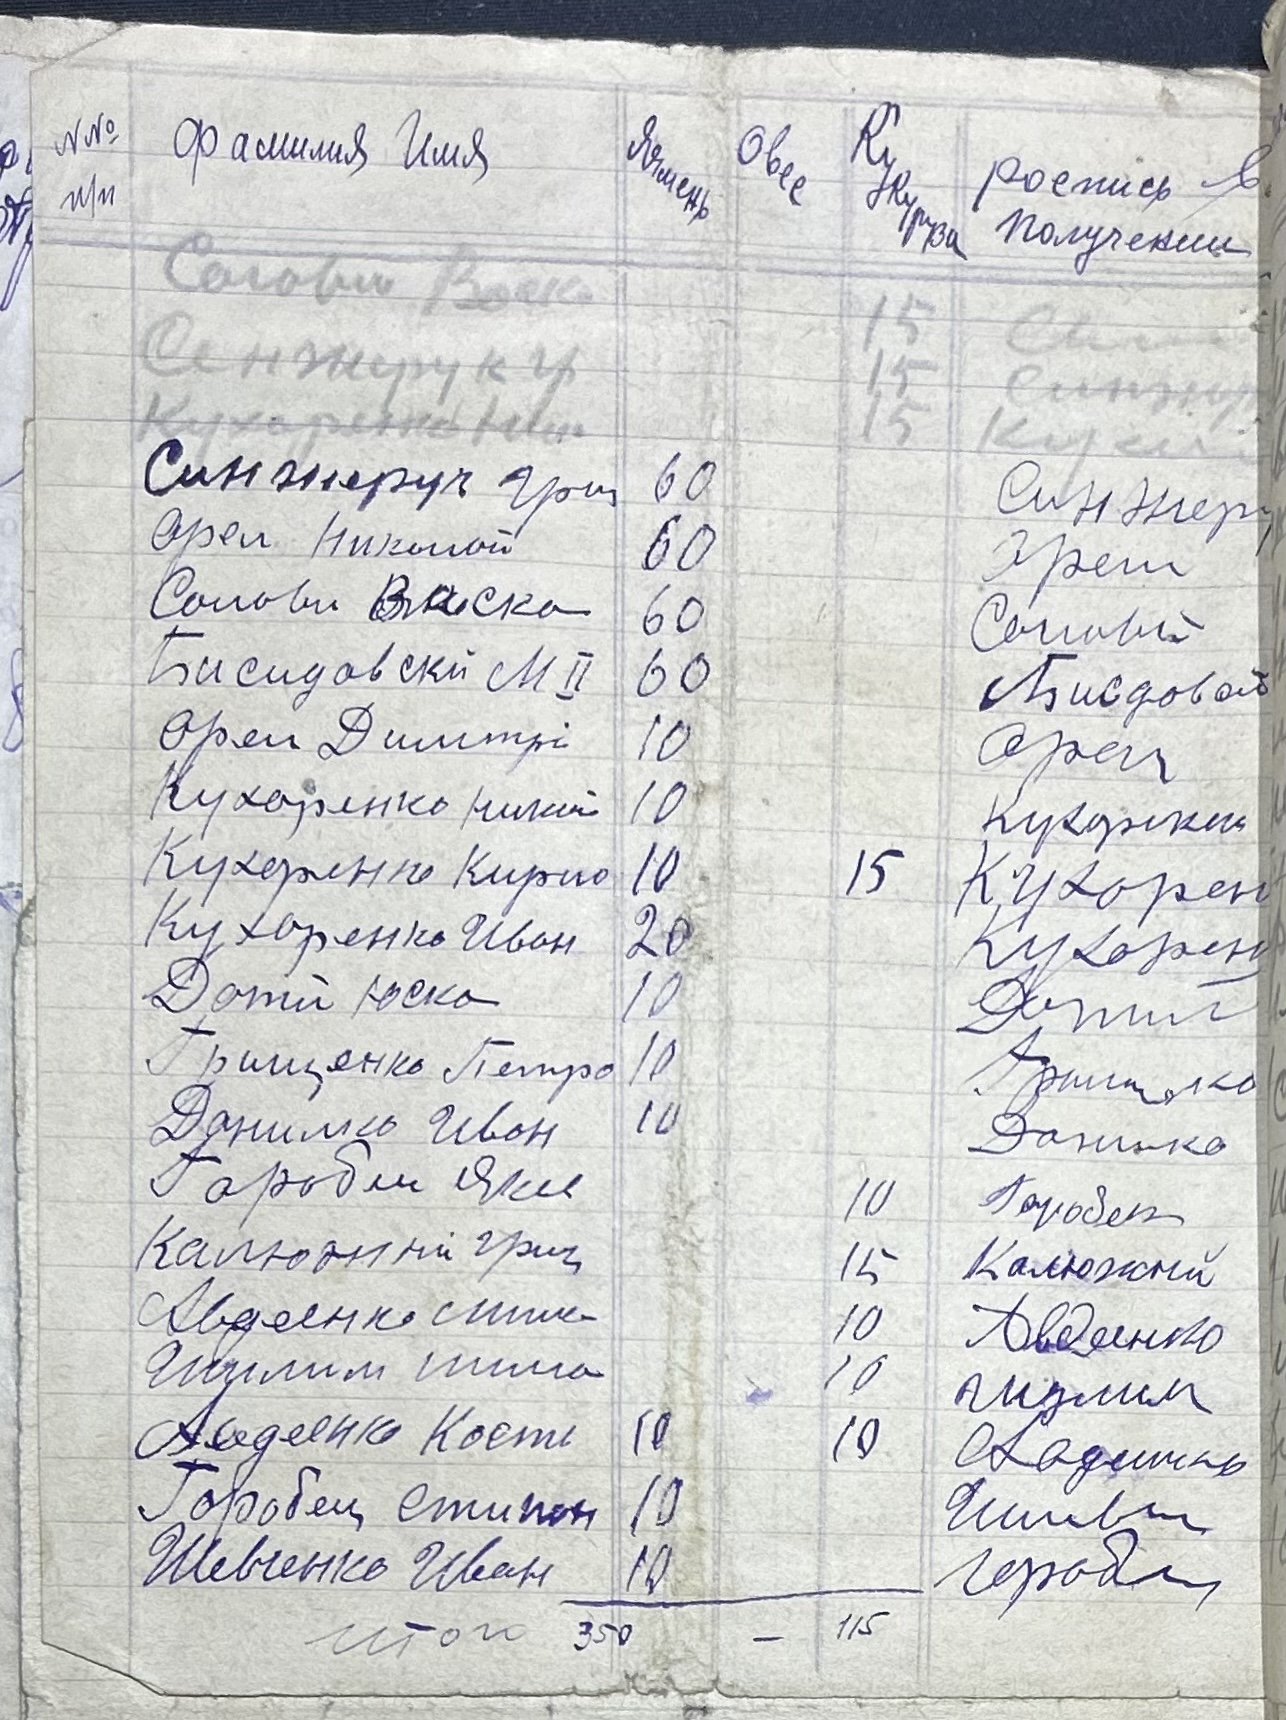 №№ п/п Фамилия Имя Ячмень Овес Кукуруза роспись в получении
Соловы Васка 15
Сенжерук Гр 15 Синжер
Кухаренко 15
Синжеруч Гриц 60 Синжеру
Орел Николай 60 Орел
Соловы Васка 60 Соловий
Бисидовский М II 60 Бисдовой
Орел Димитрі 10 Орел
Кухаренко Никий 10 Кухаренк
Кухаренко Кирило 10 15 Кухорен
Кухоренко Иван 20 Кухорен
Дотий Юска 10 Дотий
Грищенко Петро 10
Данилко Иван 10 Данилко
Горобец Яким 10 Горобец
Калюжний Гриц 15 Калюжний
Авдеенко Миша 10 Авдеенко
10
Авдеенко Кость 10 10
Горобец Стипан 10
Шевченко Иван 10 Горобец
Итого 350 — 115